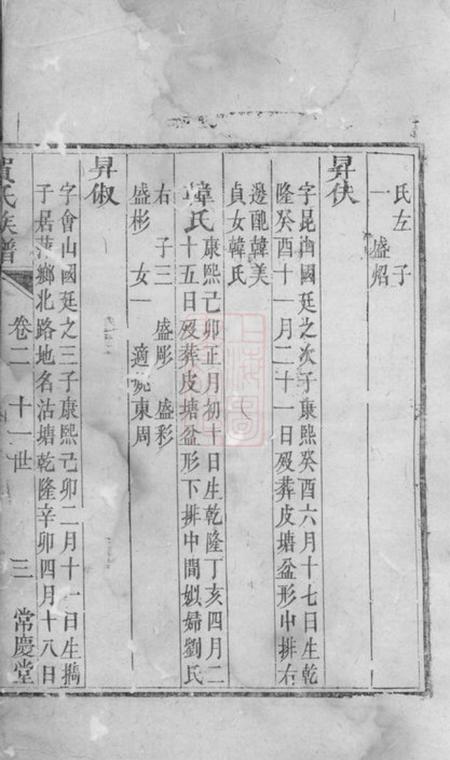 氏左 子
一 盛炤
昇伕
字昆山國廷之次子康熙癸酉六月十七日生乾
隆癸酉十一月二十一日歿葬皮塘盆形中排右
邊配韓美
貞女韓氏
韓氏 康熙己卯正月初十日生乾隆丁亥四月二
十五日歿葬皮塘盆形下排中間娰婦劉氏
右 子三 盛彫 盛彩
盛彬 女一 適 東周
昇俶
字會山國廷之三子康熙己卯二月十一日生摘
子居萍鄉北路地名沽塘乾隆辛卯四月十八日
氏族譜 卷二 十一世 三 常慶堂
上海圖